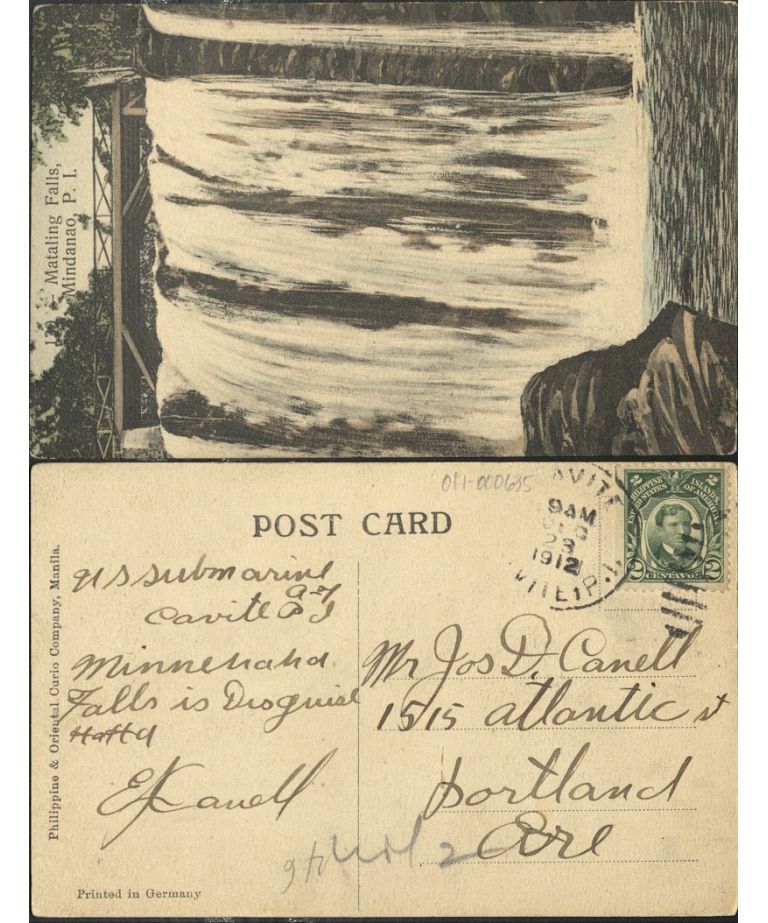 Mataling Falls,
Mindanao, P. I.
POST CARD
OP1-000635
CAVITE
9 AM
28
1912
CAVITE, P.I.
2 PHILIPPINE ISLANDS 2
UNITED STATES OF AMERICA
2 CENTAVOS 2
US Submarine
Cavite P I
Minnehaha
Falls is Disguise
E Canell
Mr Jos D. Canell
1515 atlantic st
portland
Ore
Philippine & Oriental Curio Company, Manila.
Printed in Germany